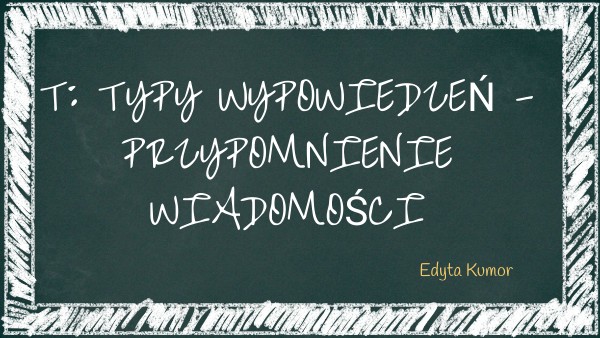 T: TYPY WYPOWIEDZEŃ -
PRZYPOMNIENIE
WIADOMOŚCI
Edyta Kumor